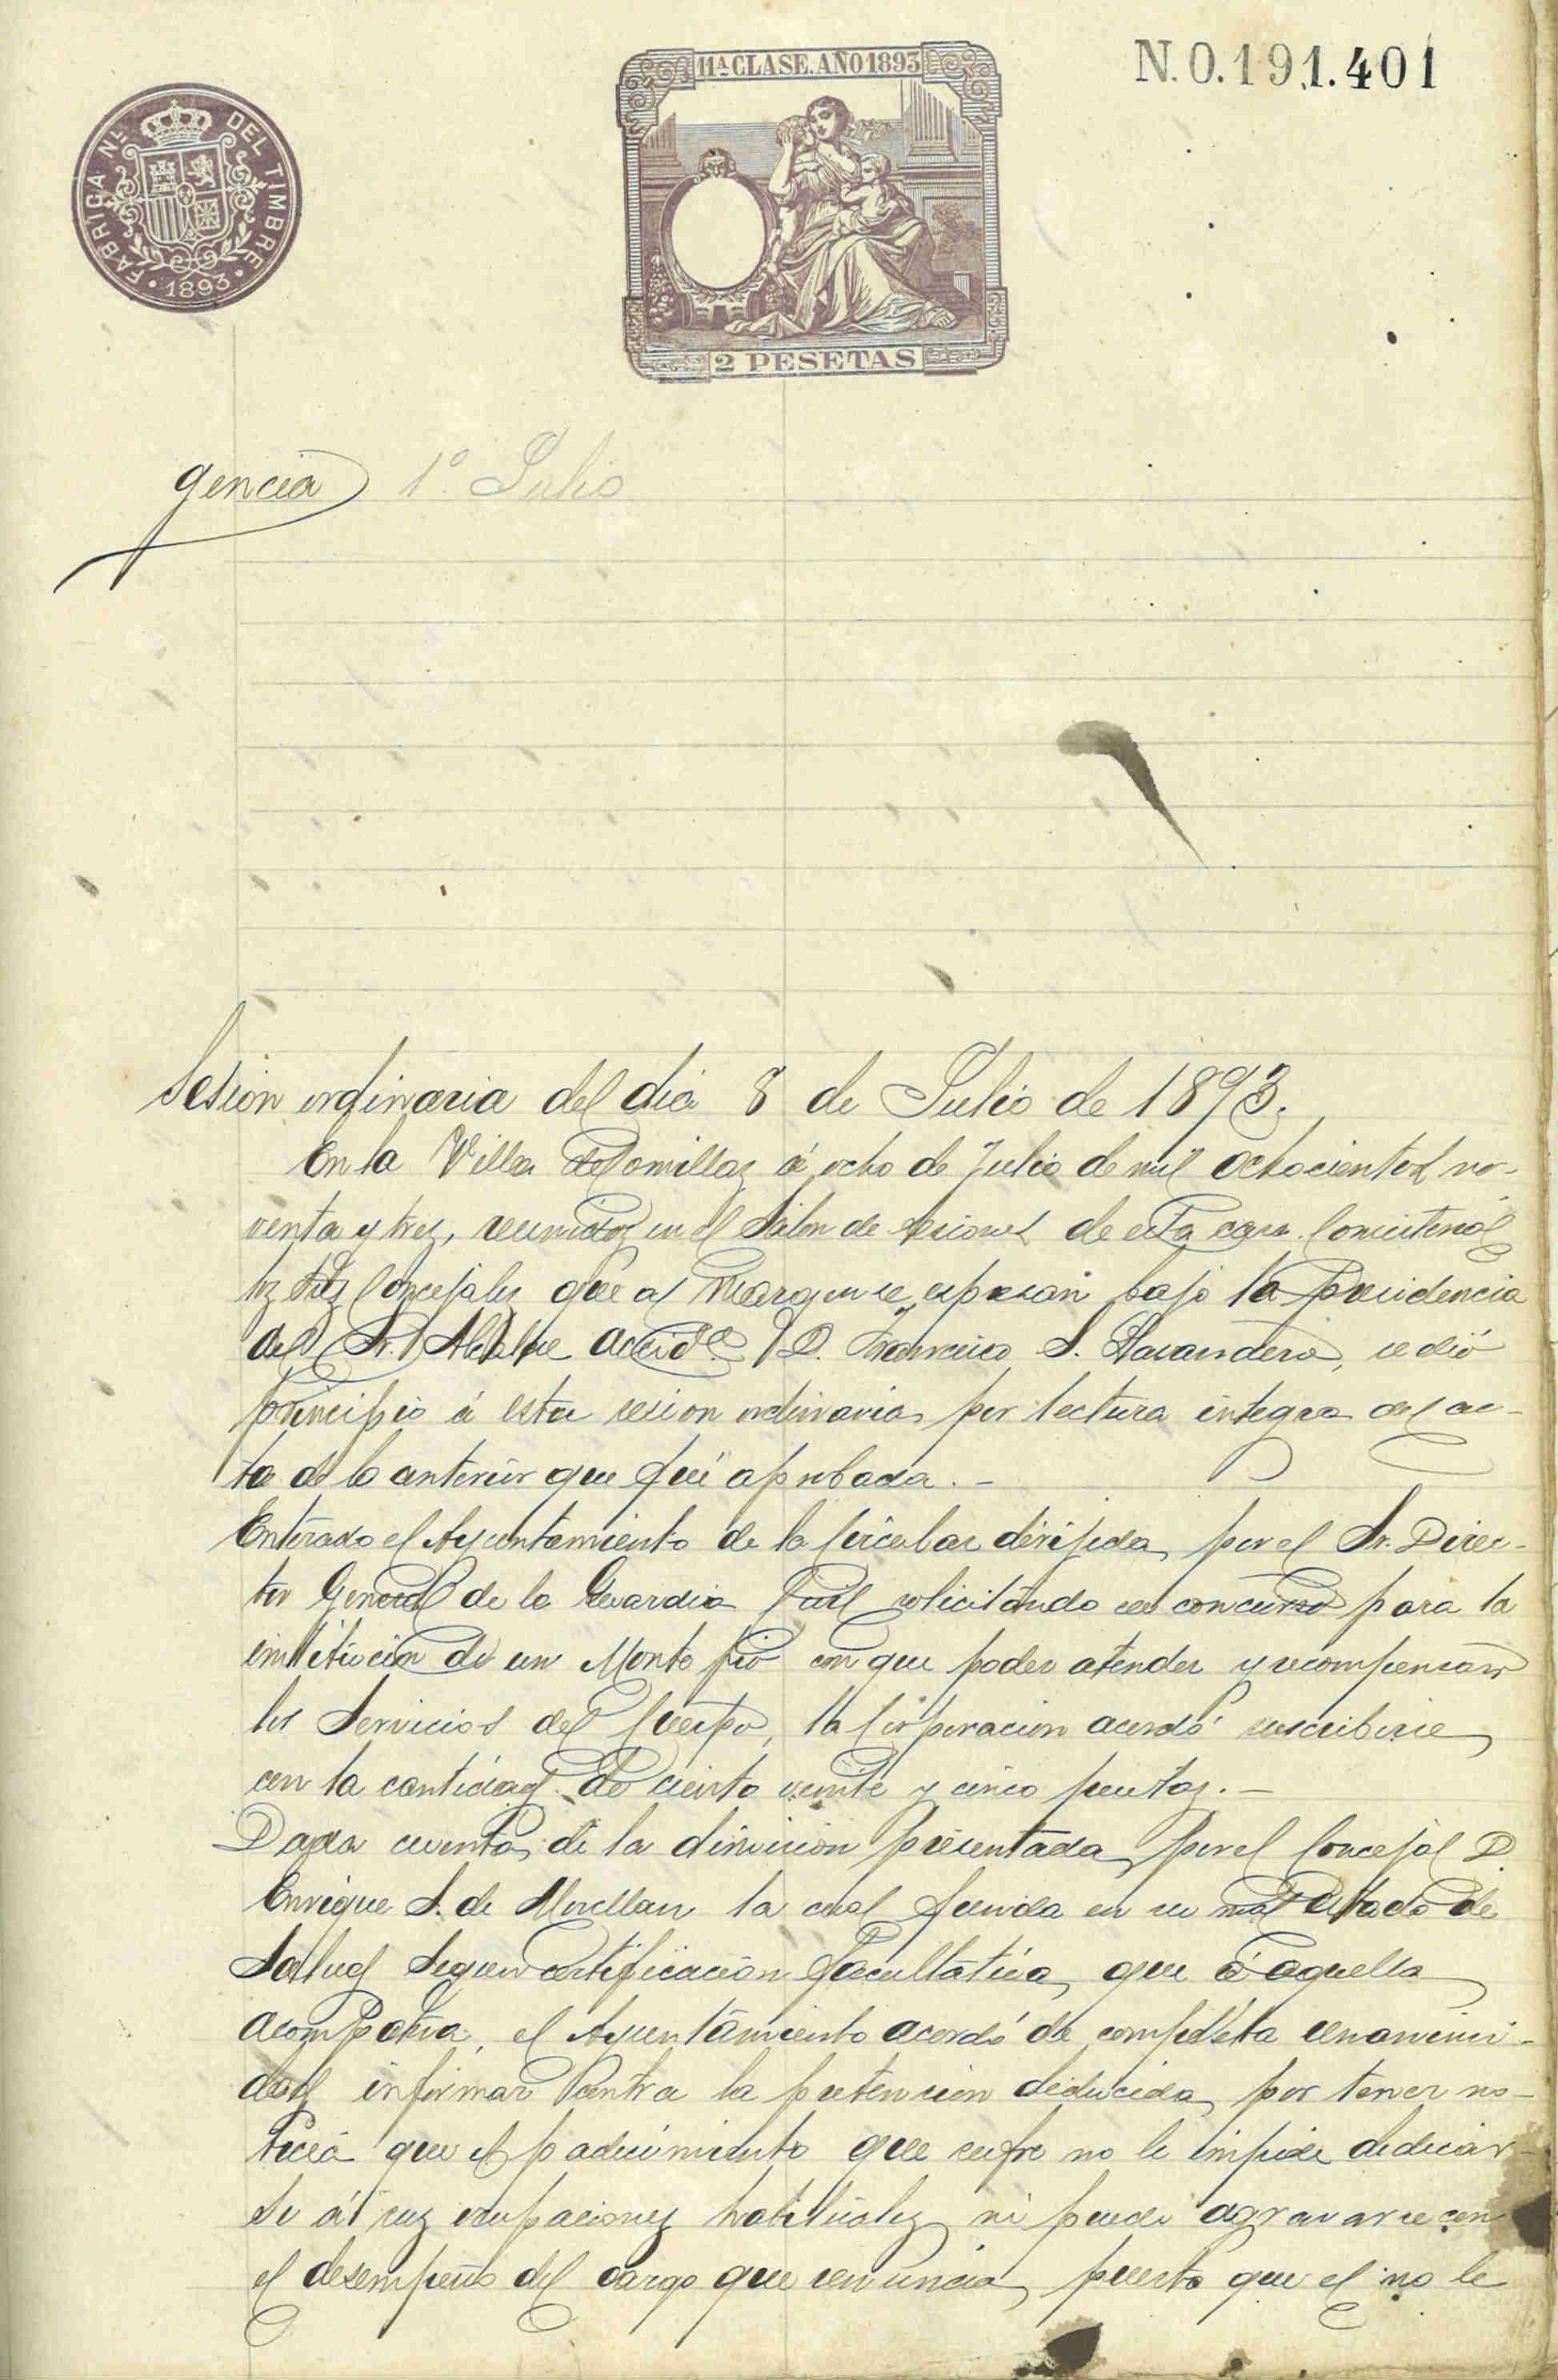 N.0.191.401
11ª CLASE. AÑO 1893
FABRICA Nl. DEL TIMBRE
· 1893 ·
2 PESETAS
gencia 1º Julio
Sesion ordinaria del dia 8 de Julio de 1893.
En la Villa de Comillas á ocho de Julio de mil ochocientos no-
venta y tres, reunidos en el Salon de sesiones de esta casa Consistorial
los Sres Concejales que al margen se espresan bajo la presidencia
del Sr. Alcalde accidl. D. Francisco S. Lavandero, se dió
principio á esta sesion ordinaria por lectura integra del ac-
ta de la anterior que fué aprobada. -
Enterado el Ayuntamiento de la Circular dirijida por el Sr. Direc-
tor General de la Guardia Civil solicitando un concurso para la
institucion de un Monte pio con que poder atender y recompensar
los Servicios del Cuerpo, la Corporacion acordó suscribirse
con la cantidad de ciento veinte y cinco pesetas. -
Dada cuenta de la dimision presentada por el Concejal D.
Enrique S. de Movellan la cual funda en su mal estado de
Salud Segun certificacion facultativa que á aquella
acompaña, el Ayuntamiento acordó de completa unanimi-
dad informar contra la pretension deducida por tener no-
ticia que el padecimiento que sufre no le impide dedicar-
se á sus ocupaciones habituales ni puede agravarse con
el desempeño del cargo que renuncia, puesto que el no le